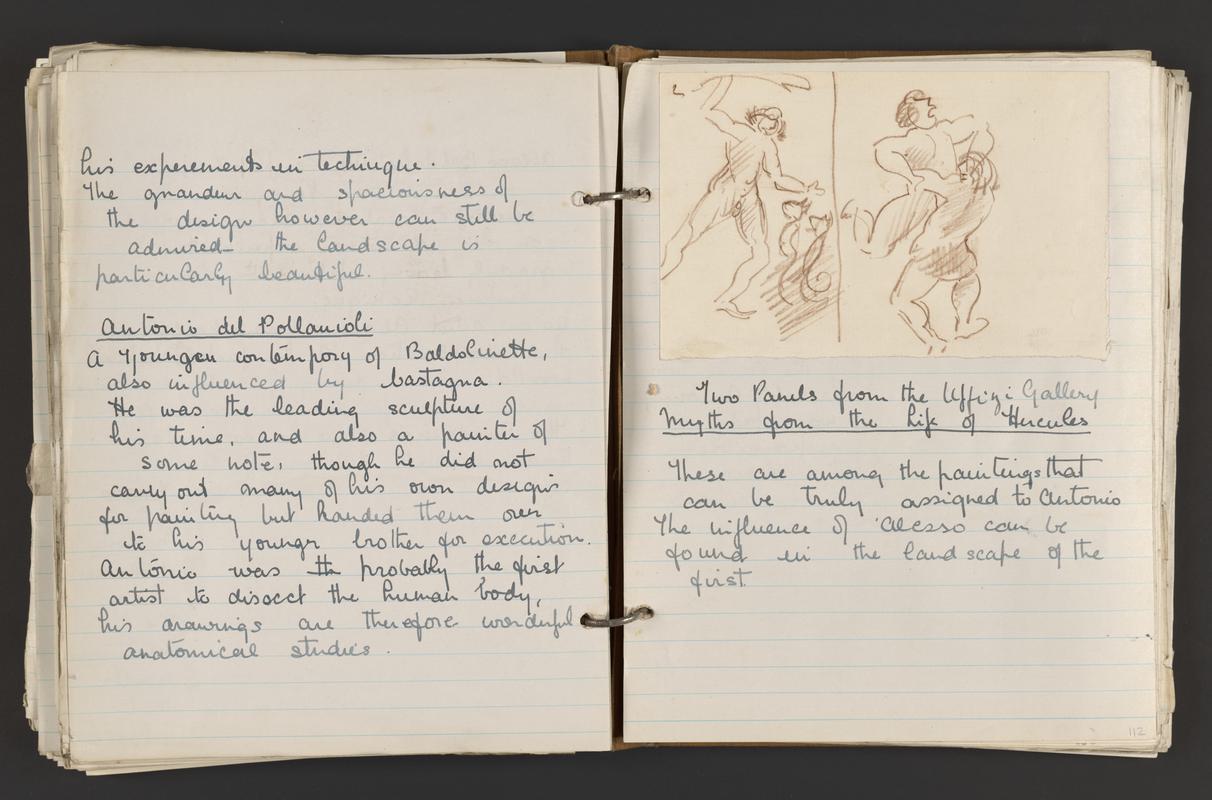 his experements in techinque.
The grandeur and spaciousness of
the design however can still be
admired – the landscape is
particularly beautiful.
Antonio del Pollauioli
A Younger contempory of Baldolinette,
also influenced by Castagna.
He was the leading sculpture of
his time, and also a painter of
some note, though he did not
carry out many of his own designs
for painting but handed them over
to his youngr brother for execution.
Antonio was th probably the first
artist to dissect the human body,
his drawings are therefore wonderful
anatomical studies.
Two Panels from the Uffizi Gallery
Myths from the life of Hercules
These are among the paintings that
can be truly assigned to Antonio
The influence of 'alesso can be
found in the landscape of the
first
112